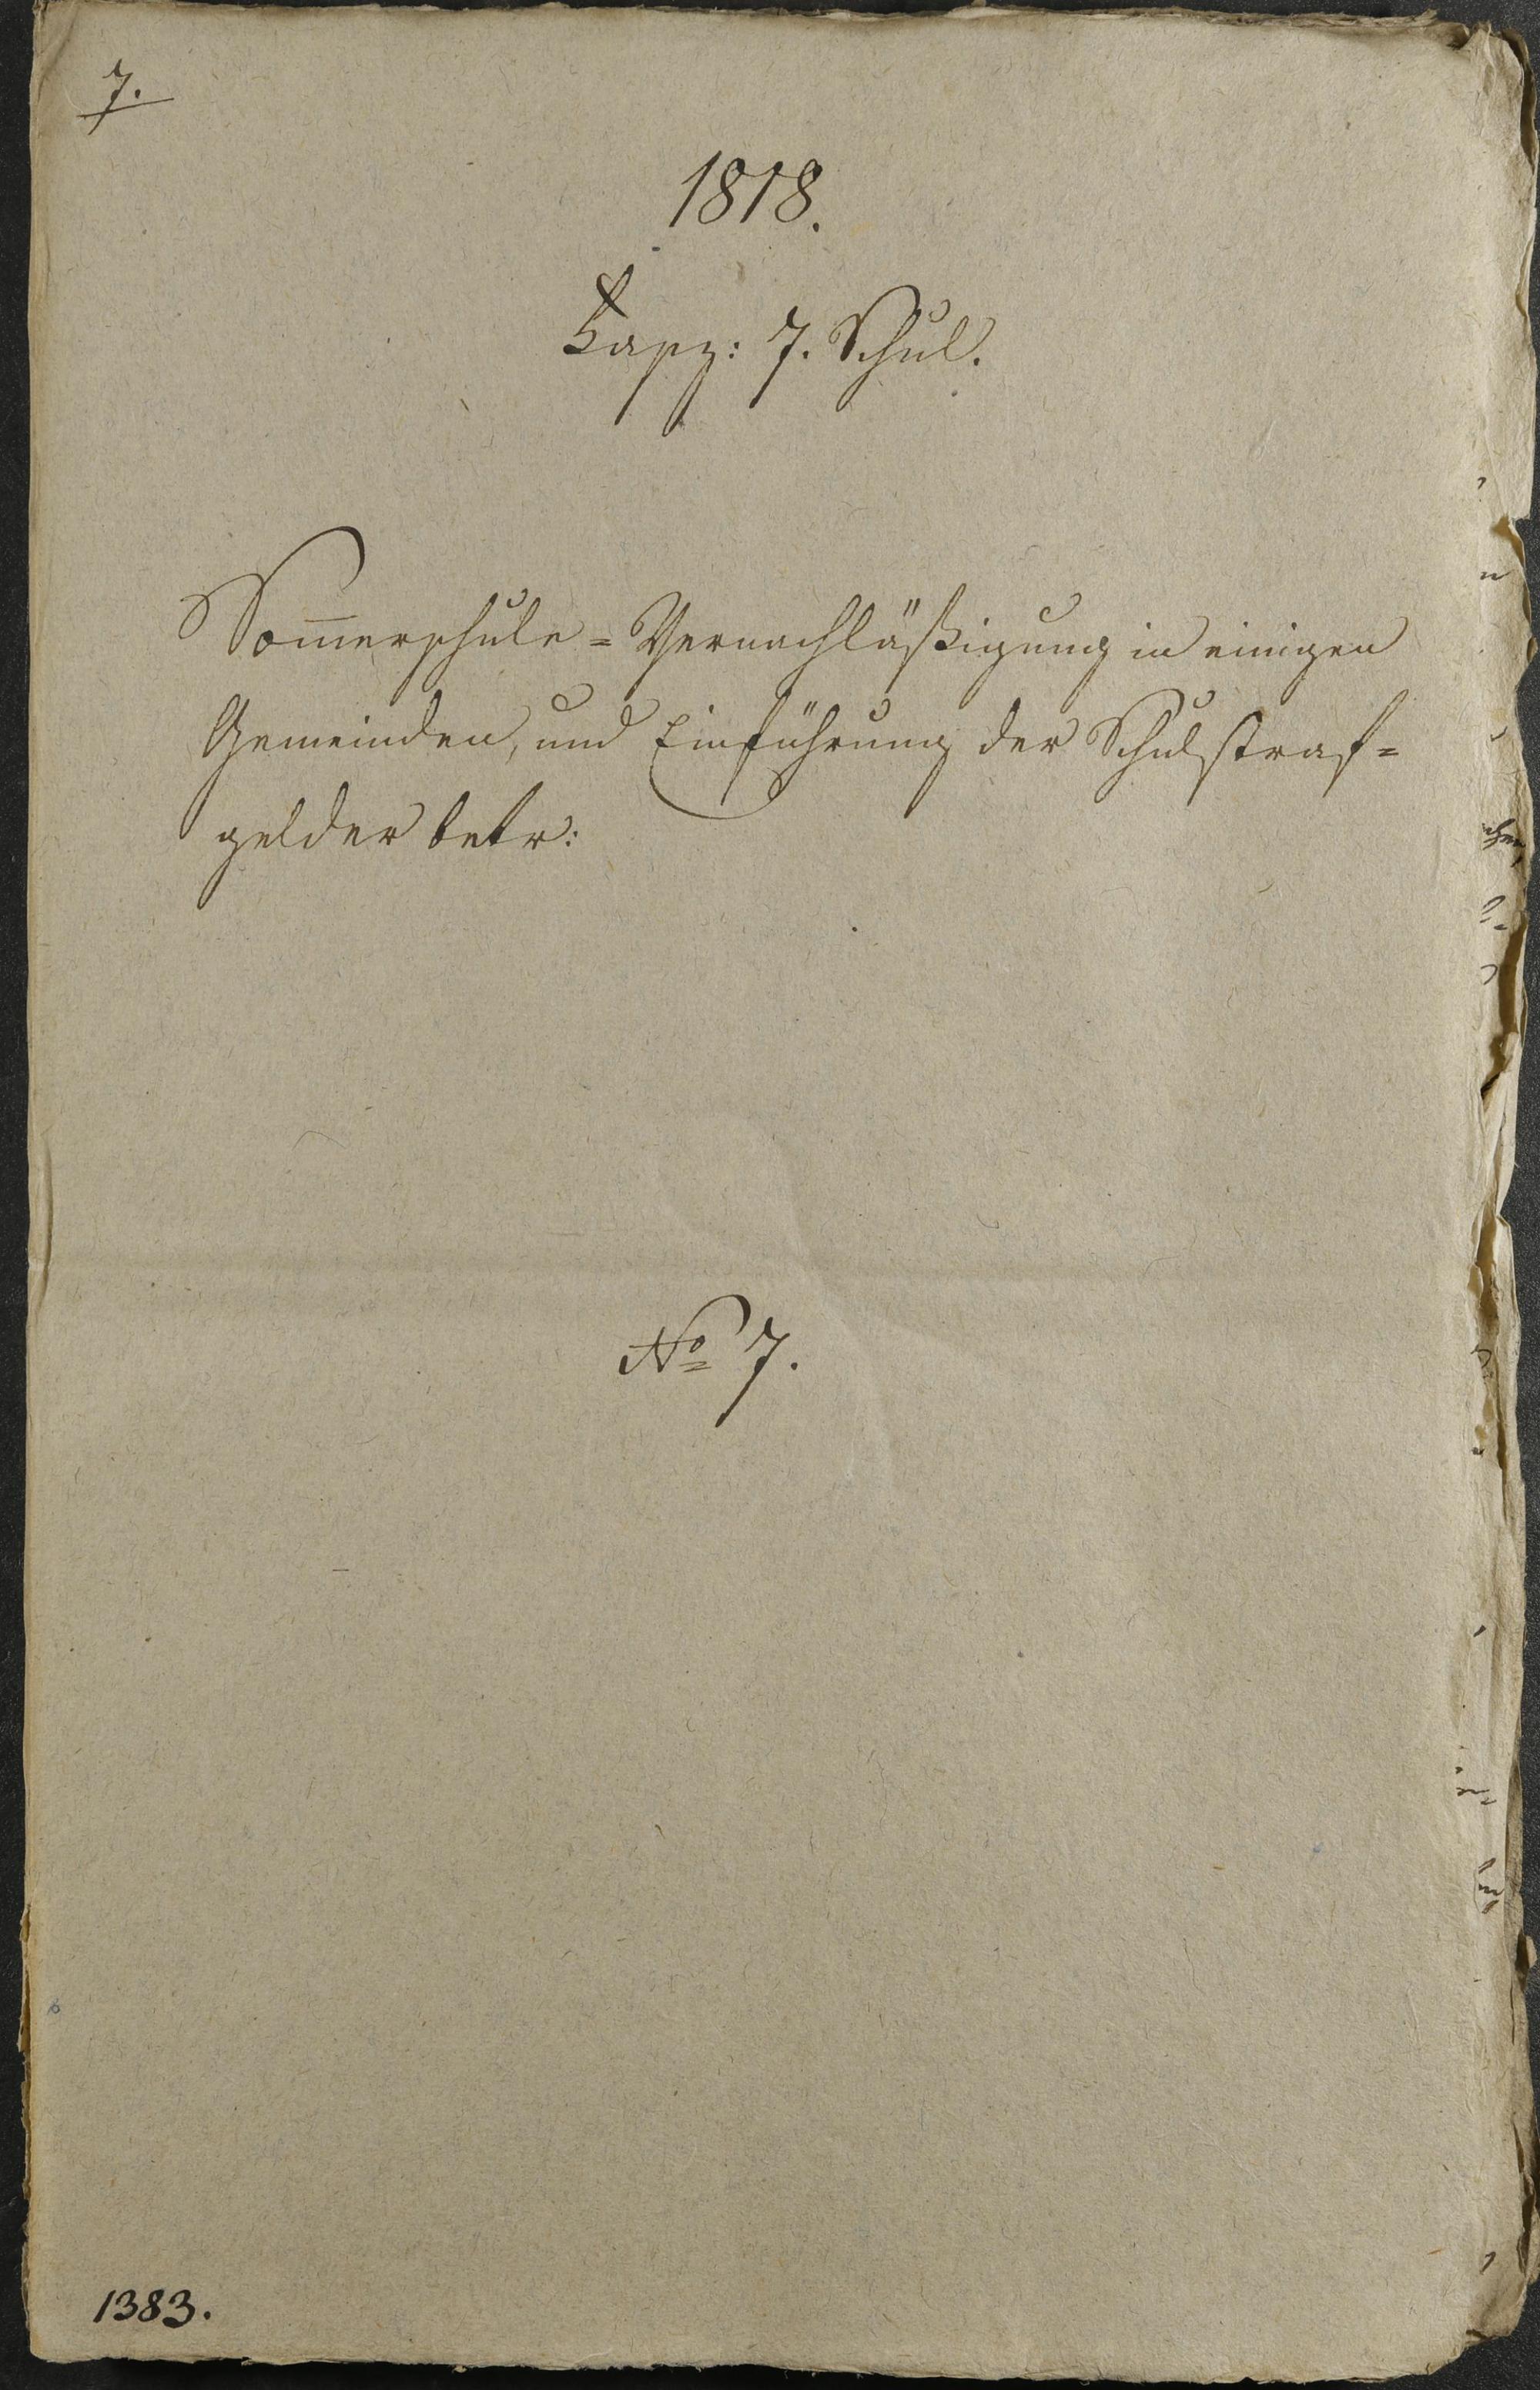 7.
1818.
Fasz: 7. Schul.
Som̅erschule=Vernachläßigung in einigen
Gemeinden, und Einführung der Schulstraf=
gelder betr:
No 7.
1383.